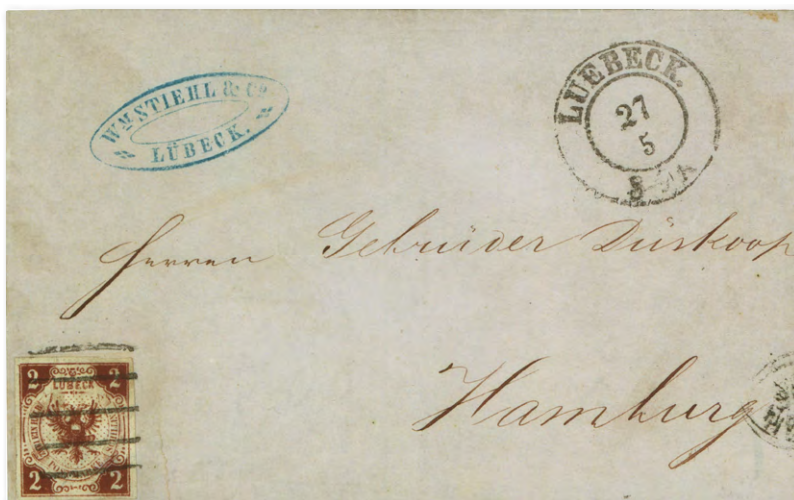 Wm. STIEHL & Co.
LÜBECK.
LUEBECK.
27
5
Herren Gebrüder Düskoop
Hamburg
2 LÜBECK 2
2 2